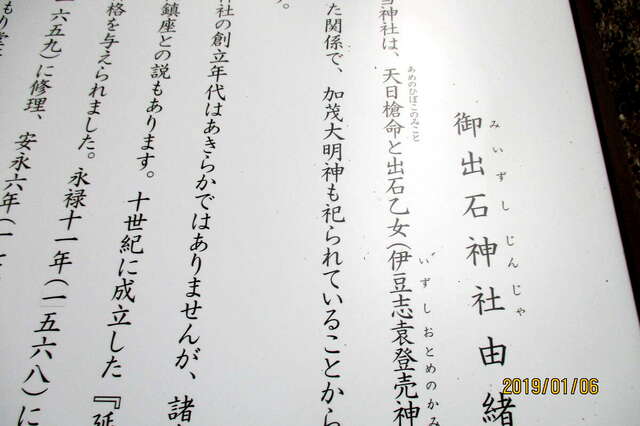 御出石神社由緒
みいずしじんじゃ
神社は、天日槍命と出石乙女(伊豆志袁登売神
あめのひぼこのみこと
いずしおとめのかみ
た関係で、加茂大明神も祀られていることから
す。
社の創立年代はあきらかではありませんが、諸
鎮座との説もあります。十世紀に成立した『延
格を与えられました。永禄十一年(一五六八)に
六五九)に修理、安永六年(一七
2019/01/06